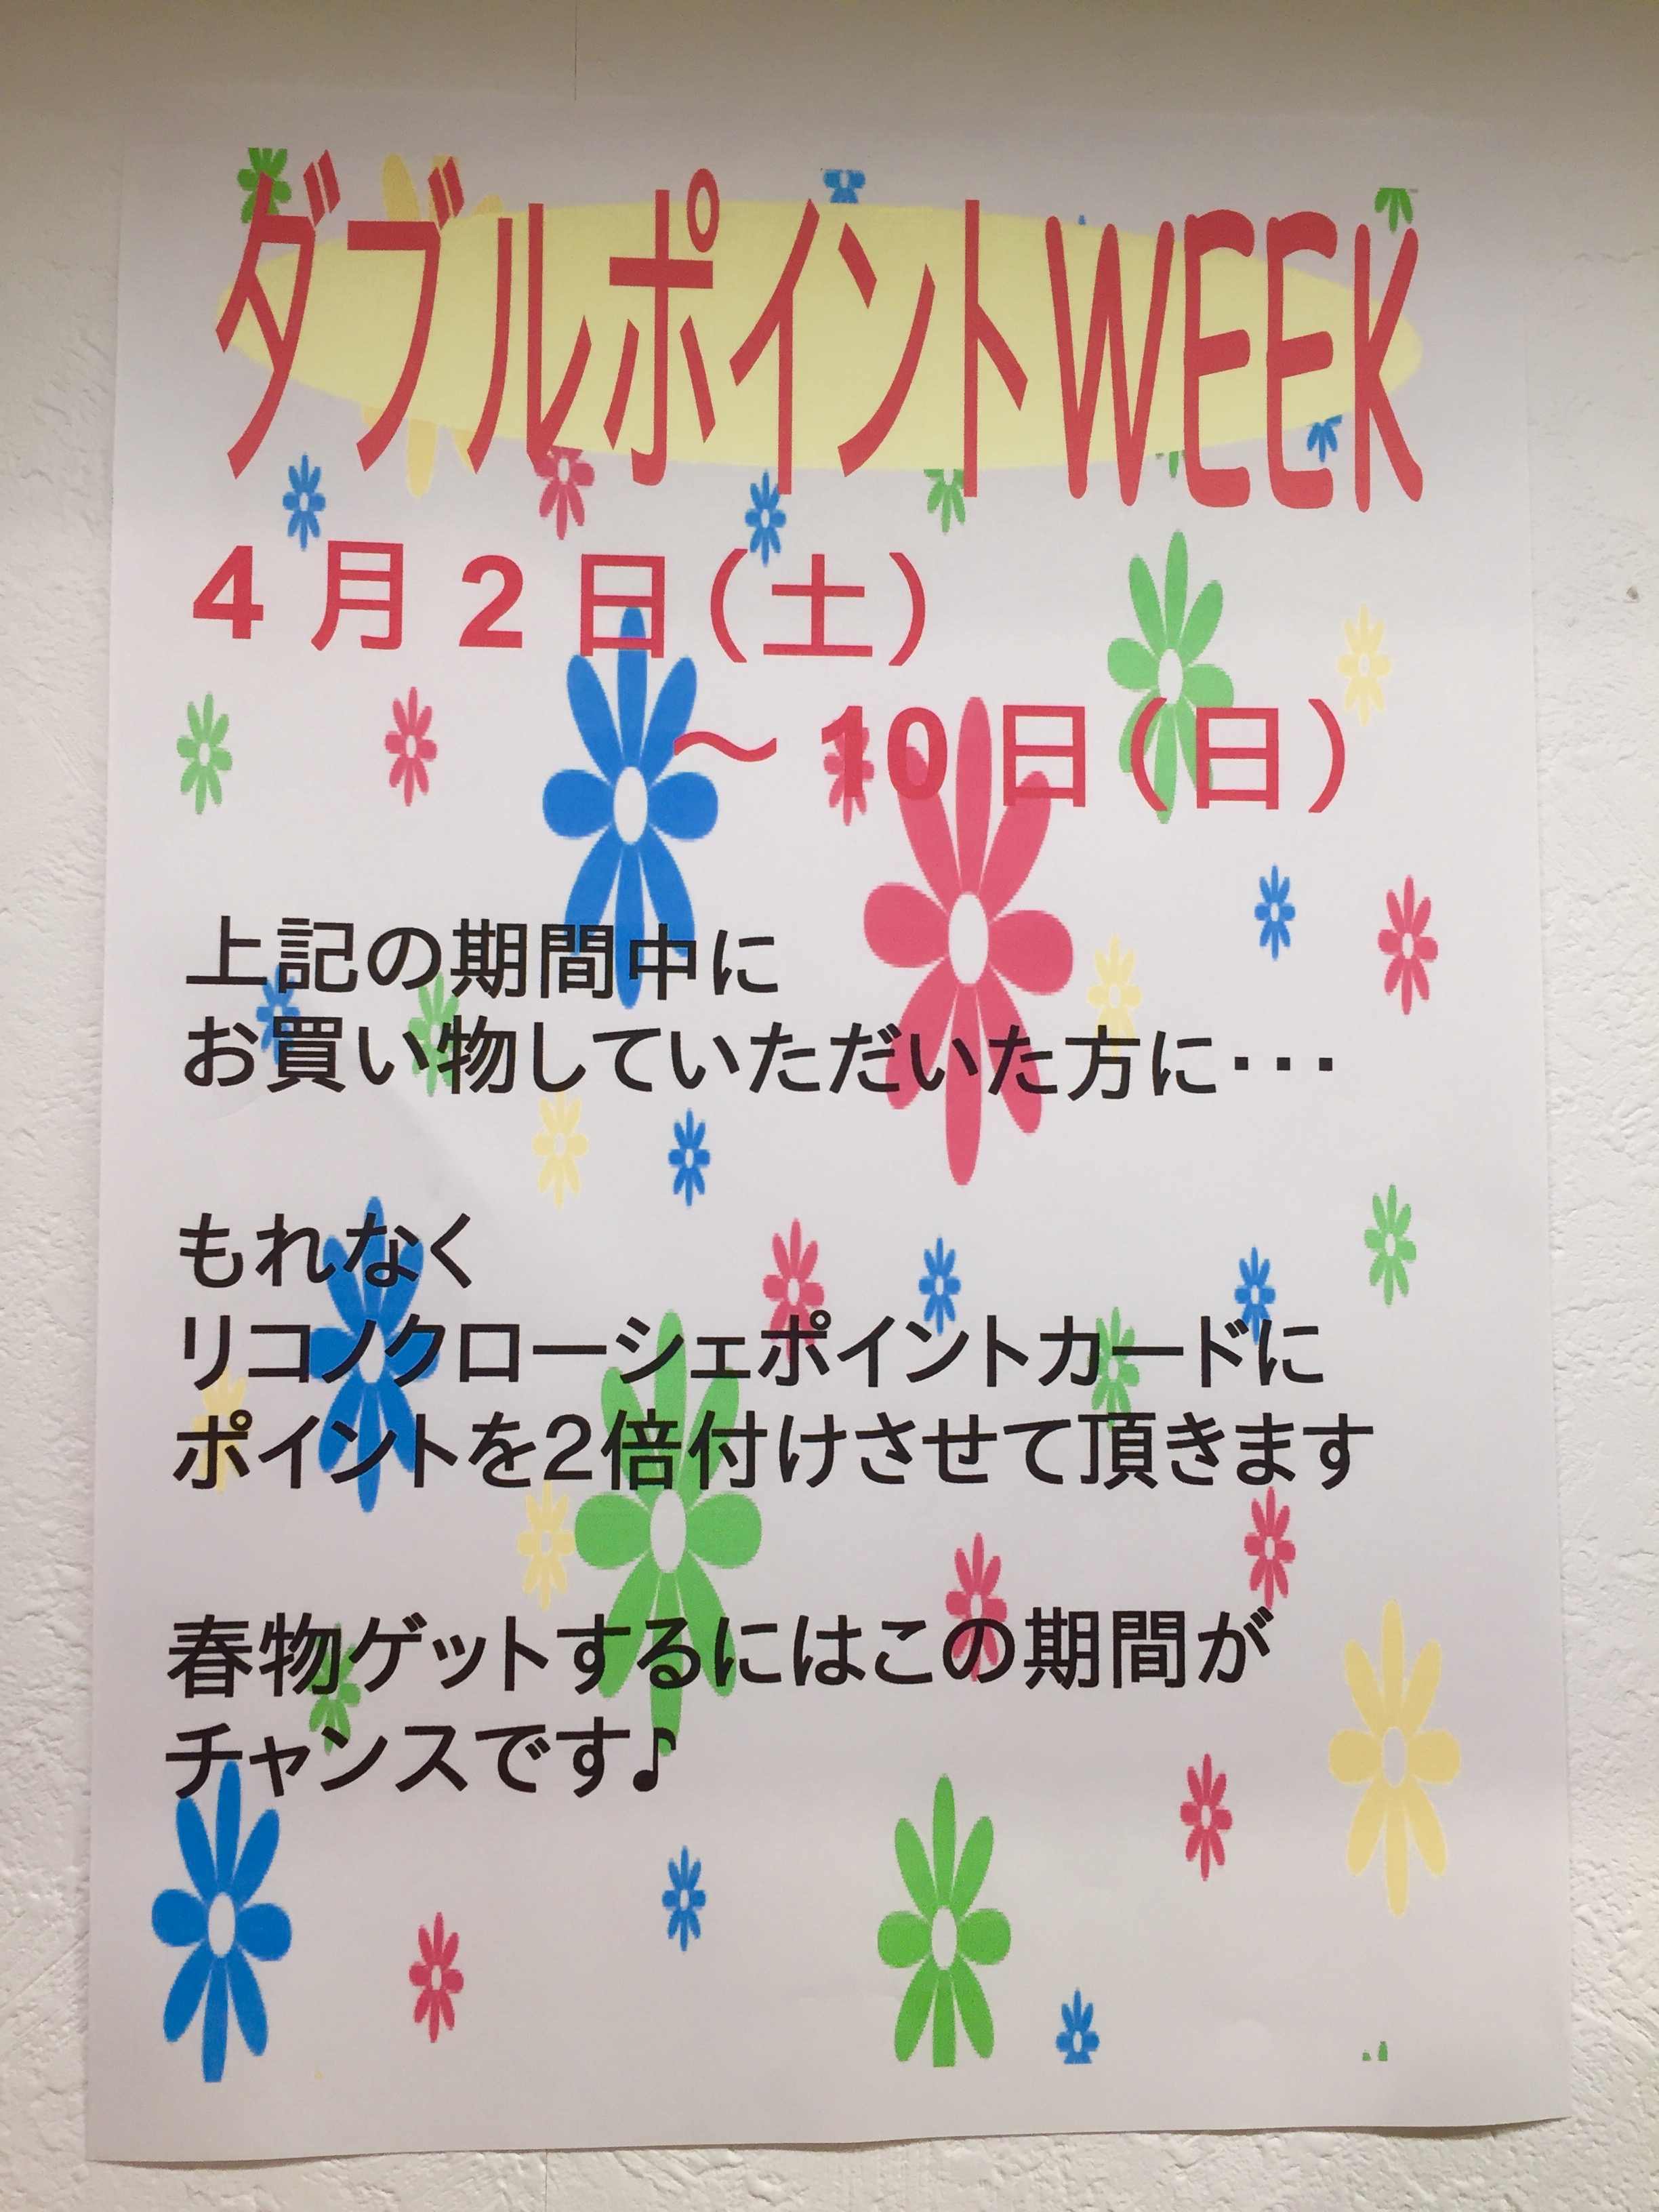 ダブルポイントWEEK
4月2日(土)
～10日(日)
上記の期間中に
お買い物していただいた方に・・・
もれなく
リコノクローシェポイントカードに
ポイントを2倍付けさせて頂きます
春物ゲットするにはこの期間が
チャンスです♪